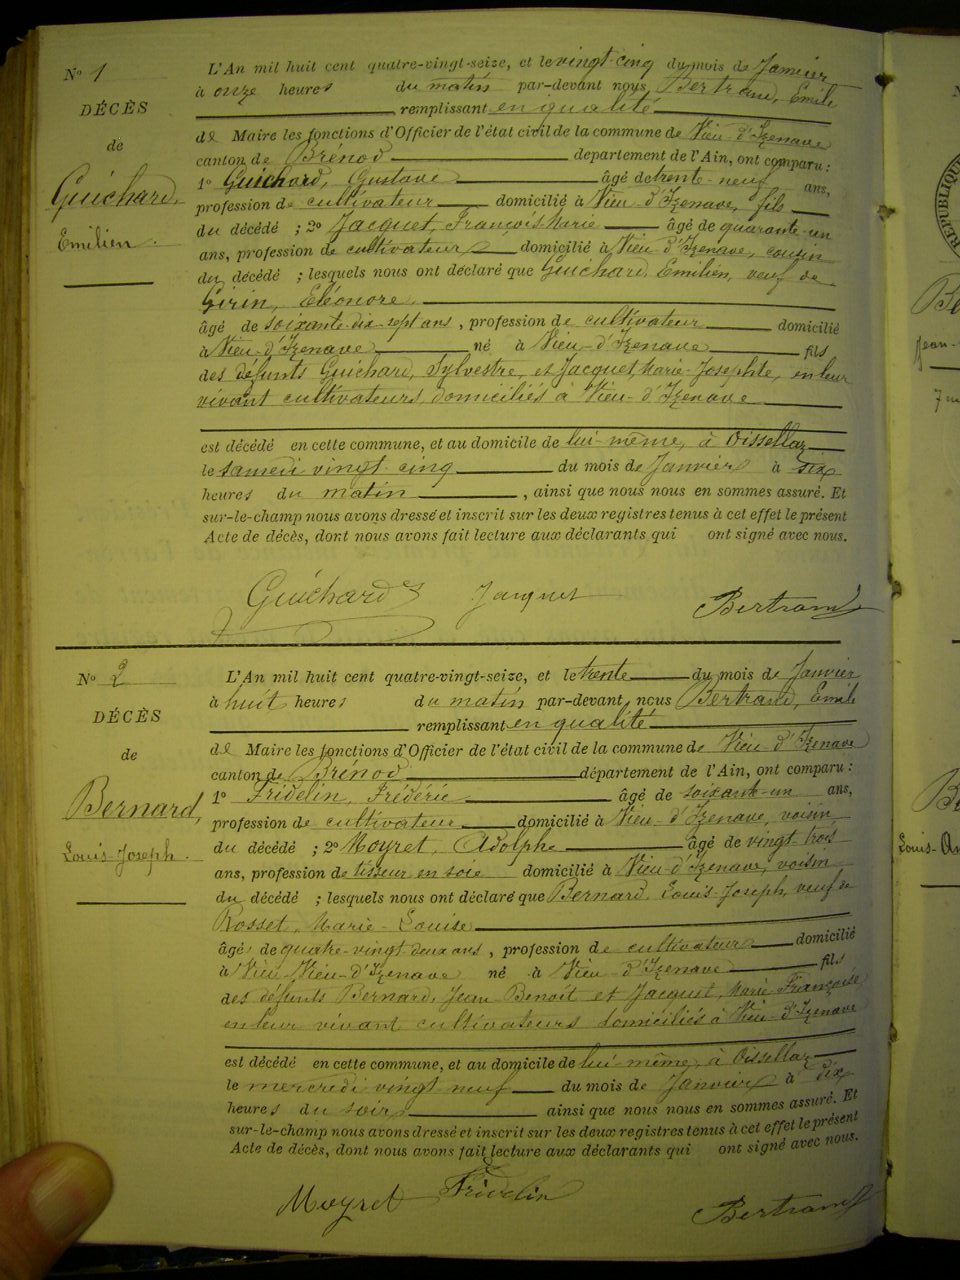 N° 1
DÉCÈS
de
Guichard,
Emilien.
L'An mil huit cent quatre-vingt-seize, et le vingt-cinq du mois de Janvier
à onze heures du matin par-devant nous Bertrand, Emile
remplissant en qualité
de Maire les fonctions d'Officier de l'état civil de la commune de Vieu-d'Izenave
canton de Brénod departement de l'Ain, ont comparu :
1° Guichard, Gustave âgé de trente-neuf ans,
profession de cultivateur domicilié à Vieu-d'Izenave, fils
du décédé ; 2° Jacquet, François Marie âgé de quarante-un
ans, profession de cultivateur domicilié à Vieu d'Izenave, cousin
du décédé ; lesquels nous ont déclaré que Guichard, Emilien, veuf de
Girin, Eléonore
âgé de soixante-dix-sept ans, profession de cultivateur domicilié
à Vieu-d'Izenave né à Vieu-d'Izenave fils
des défunts Guichard, Sylvestre, et Jacquet, Marie-Josephte, en leur
vivant cultivateurs, domiciliés à Vieu-d'Izenave
est décédé en cette commune, et au domicile de lui-même, à Oissellaz
le samedi vingt-cinq du mois de Janvier à six
heures du matin, ainsi que nous nous en sommes assuré. Et
sur-le-champ nous avons dressé et inscrit sur les deux registres tenus à cet effet le présent
Acte de décès, dont nous avons fait lecture aux déclarants qui ont signé avec nous.
Guichard Jacquet Bertrand
N° 2
DÉCÈS
de
Bernard,
Louis-Joseph.
L'An mil huit cent quatre-vingt-seize, et le trente du mois de Janvier
à huit heures du matin par-devant nous Bertrand, Emile
remplissant en qualité
de Maire les fonctions d'Officier de l'état civil de la commune de Vieu-d'Izenave
canton de Brénod département de l'Ain, ont comparu :
1° Fridelin, Frédéric âgé de soixante-un ans,
profession de cultivateur domicilié à Vieu-d'Izenave, voisin
du décédé ; 2° Moyret, Adolphe âgé de vingt trois
ans, profession de tisseur en soie domicilié à Vieu-d'Izenave, voisin
du décédé ; lesquels nous ont déclaré que Bernard, Louis-Joseph, veuf de
Rosset, Marie-Louise
âgé de quatre-vingt deux ans, profession de cultivateur domicilié
à Vieu Vieu-d'Izenave né à Vieu-d'Izenave fils
des défunts Bernard, Jean Benoît et Jacquet, Marie Françoise
en leur vivant cultivateurs domiciliés à Vieu-d'Izenave
est décédé en cette commune, et au domicile de lui-même, à Oissellaz
le mercredi vingt neuf du mois de Janvier à dix
heures du soir ainsi que nous nous en sommes assuré. Et
sur-le-champ nous avons dressé et inscrit sur les deux registres tenus à cet effet le présent
Acte de décès, dont nous avons fait lecture aux déclarants qui ont signé avec nous.
Moyret Fridelin Bertrand
RÉPUBLIQUE
Jean-
Louis-